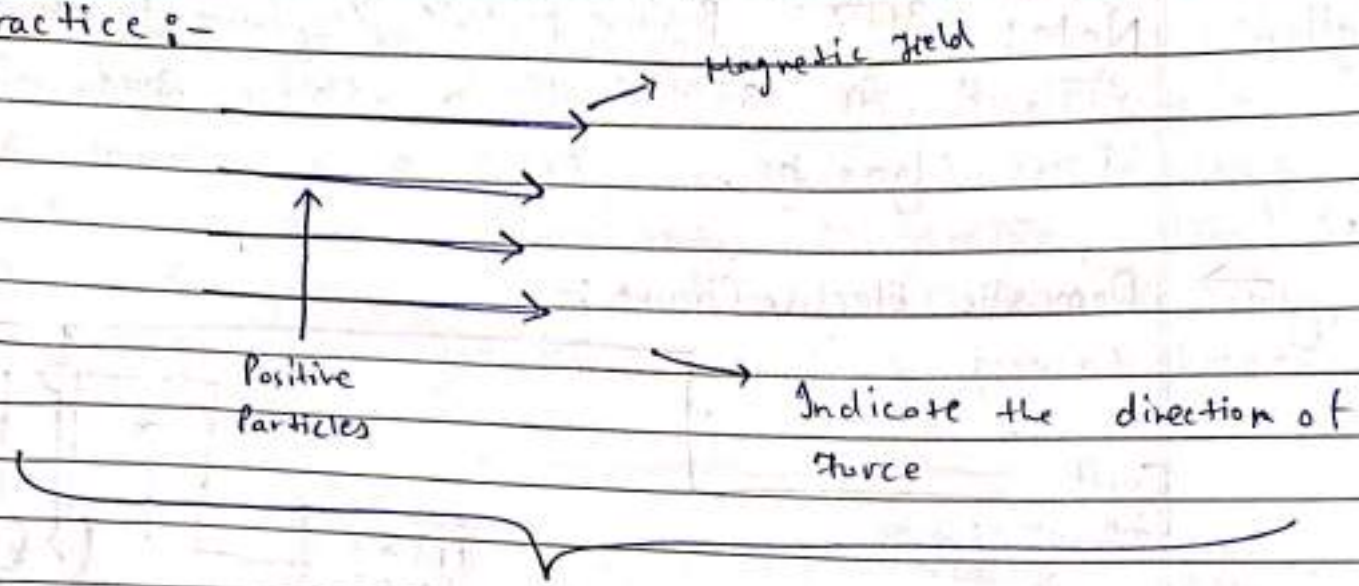 ractice :-
Magnetic field
Positive
Particles
Indicate the direction of
Force